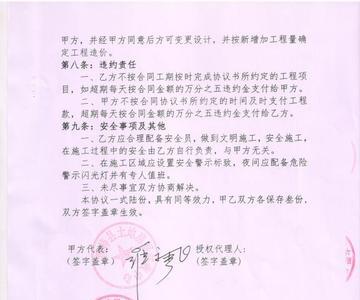 甲方，并经甲方同意后方可变更设计，并按新增加工程量确
定工程造价。
第八条：违约责任
一、乙方不按合同工期按时完成协议书所约定的工程项
目，如超期每天按合同金额的万分之五违约金支付给甲方。
二、甲方不按合同协议书所约定的时间及时支付工程
款，超期每天按合同金额的万分之五违约金支付给乙方。
第九条：安全事项及其他
一、乙方应合理配备安全员，做到文明施工，安全施工，
在施工过程中的安全由乙方自行负责，与甲方无关。
二、在施工区域应设置安全警示标致，夜间应配备危险
警示闪光灯并有专人值班。
三、未尽事宜双方协商解决。
本协议一式陆份，具有同等效力，甲乙双方各保存叁份，
双方签字盖章生效。
甲方代表：
授权代理人：
(签字盖章)
(签字盖章)